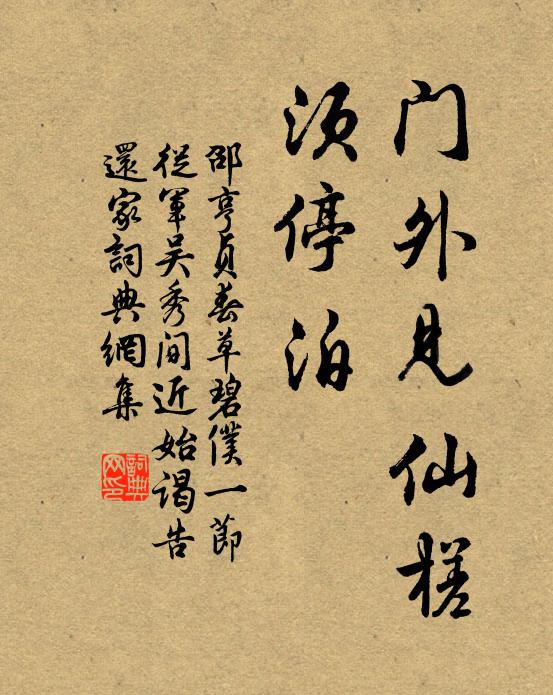 门外见仙槎
须停泊
邵亨貞春草碧僕一節
從軍吴秀间近始谒告
還家詞典網集
詞典
网印